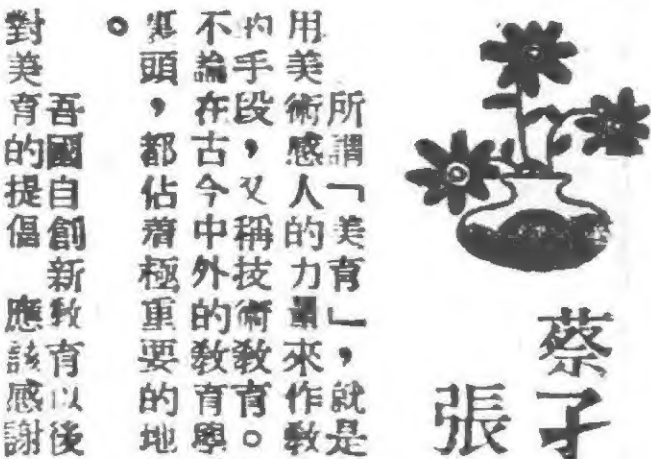 蔡孑
張
所謂「美育」，就是
用美術感人的力量來作教
的手段，又稱技術教育。
不論在古今中外的教育學
頭，都佔着極重要的地
。
吾國自創新教育以後
對美育的提倡 應該感謝